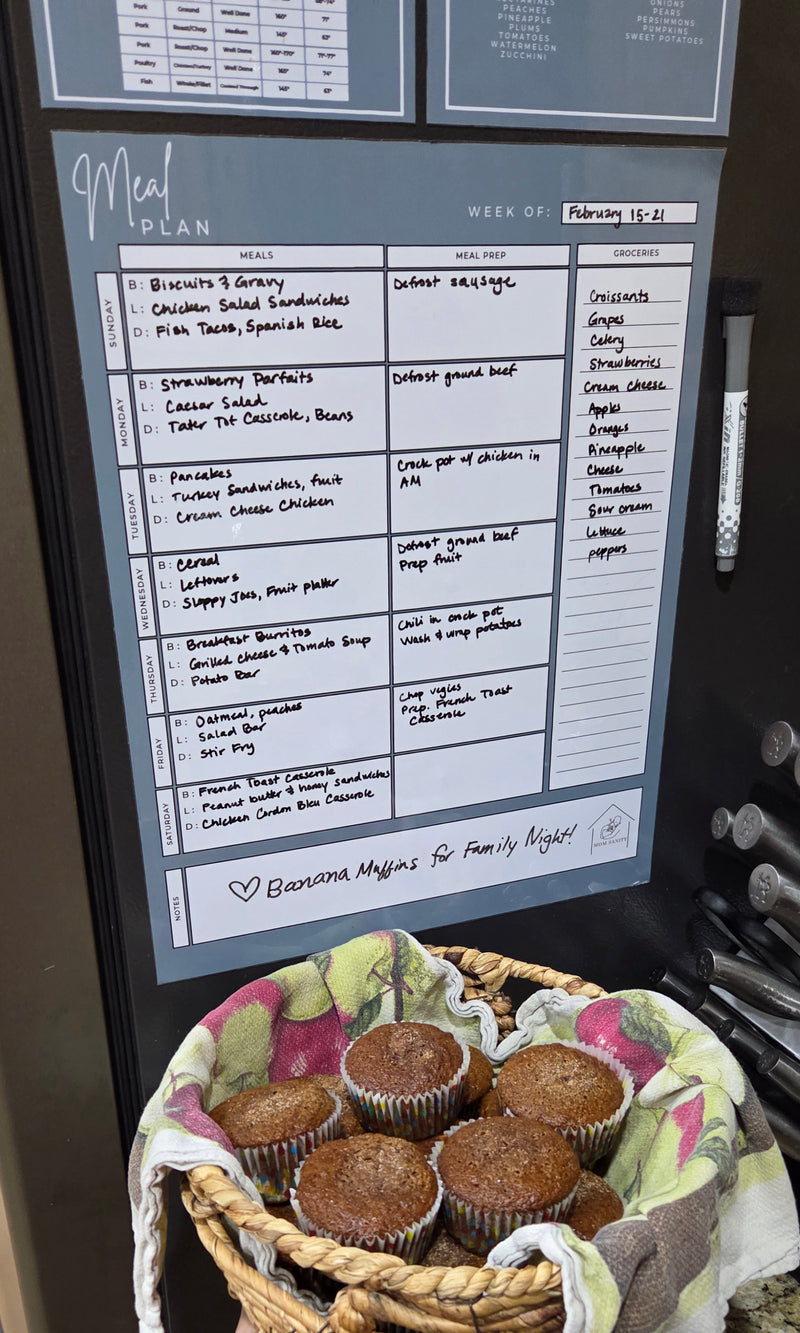 Pork Ground Well Done 160° 71°
Pork Roast/Chop Medium 145° 63°
Pork Roast/Chop Well Done 160°-170° 71°-77°
Poultry Chicken/Turkey Well Done 165° 74°
Fish Whole/Fillet Cooked Through 145° 63°
NECTARINES
PEACHES
PINEAPPLE
PLUMS
TOMATOES
WATERMELON
ZUCCHINI
ONIONS
PEARS
PERSIMMONS
PUMPKINS
SWEET POTATOES
Meal
PLAN
WEEK OF: February 15-21
MEALS
MEAL PREP
GROCERIES
SUNDAY
B: Biscuits & Gravy
L: Chicken Salad Sandwiches
D: Fish Tacos, Spanish Rice
Defrost sausage
MONDAY
B: Strawberry Parfaits
L: Caesar Salad
D: Tater Tot Casserole, Beans
Defrost ground beef
TUESDAY
B: Pancakes
L: Turkey Sandwiches, fruit
D: Cream Cheese Chicken
Crock pot w/ chicken in
AM
WEDNESDAY
B: Cereal
L: Leftovers
D: Sloppy Joes, Fruit platter
Defrost ground beef
Prep fruit
THURSDAY
B: Breakfast Burritos
L: Grilled cheese & Tomato Soup
D: Potato Bar
Chili in crock pot
Wash & wrap potatoes
FRIDAY
B: Oatmeal, peaches
L: Salad Bar
D: Stir Fry
Chop vegies
Prep. French Toast
Casserole
SATURDAY
B: French Toast Casserole
L: Peanut butter & honey sandwiches
D: Chicken Cordon Bleu Casserole
Croissants
Grapes
Celery
Strawberries
Cream cheese
Apples
Oranges
Pineapple
Cheese
Tomatoes
Sour cream
lettuce
peppers
NOTES
♡ Banana Muffins for Family Night!
MOM SANITY